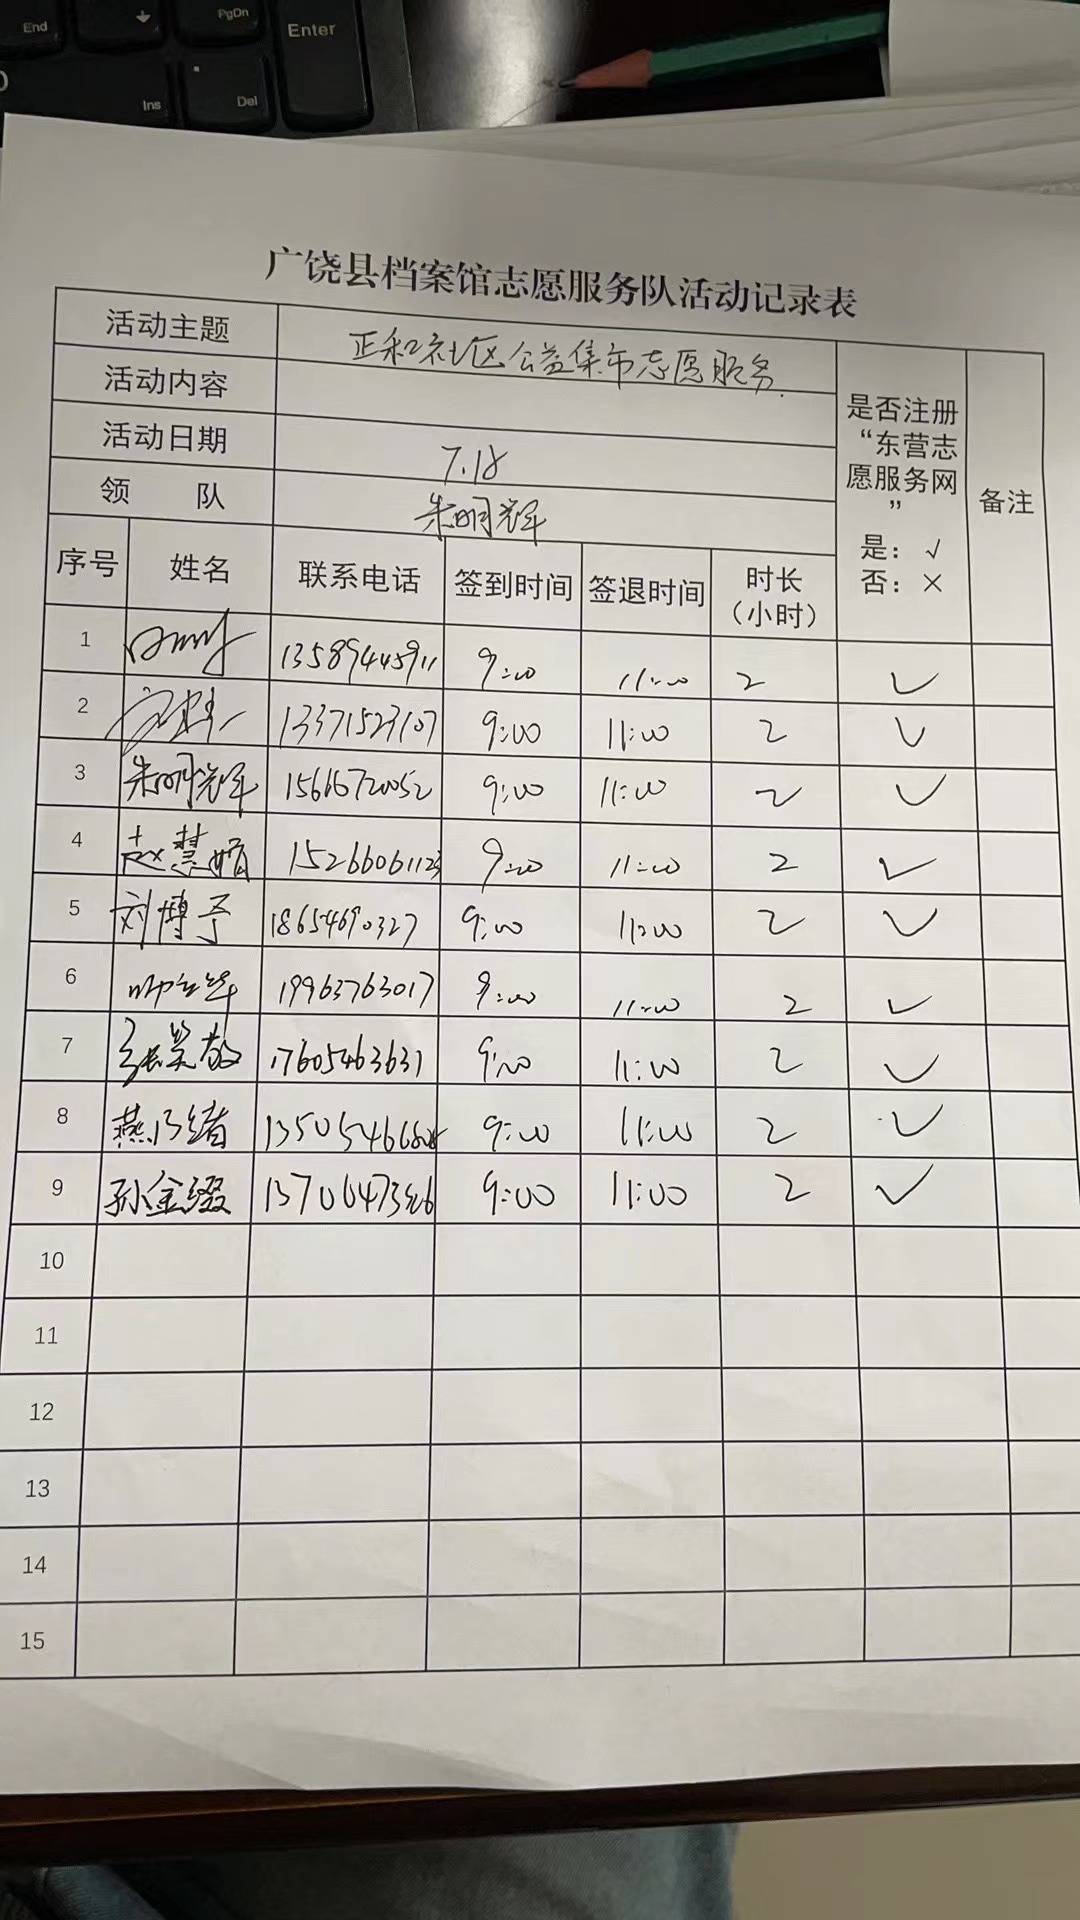 End
PgDn
Enter
Ins
Del
广饶县档案馆志愿服务队活动记录表
活动主题 正和社区公益集市志愿服务
活动内容
活动日期 7.18
领 队 朱明辉
是否注册“东营志愿服务网”
是：√
否：×
备注
序号 姓名 联系电话 签到时间 签退时间 时长（小时）
1 13589445911 9:00 11:00 2 ✓
2 13371523107 9:00 11:00 2 ✓
3 朱明辉 15616720052 9:00 11:00 2 ✓
4 赵慧娟 15266061123 9:00 11:00 2 ✓
5 刘博予 18654690327 9:00 11:00 2 ✓
6 19963763017 9:00 11:00 2 ✓
7 17605463631 9:00 11:00 2 ✓
8 燕乃绪 9:00 11:00 2 ✓
9 孙金缀 9:00 11:00 2 ✓
10
11
12
13
14
15